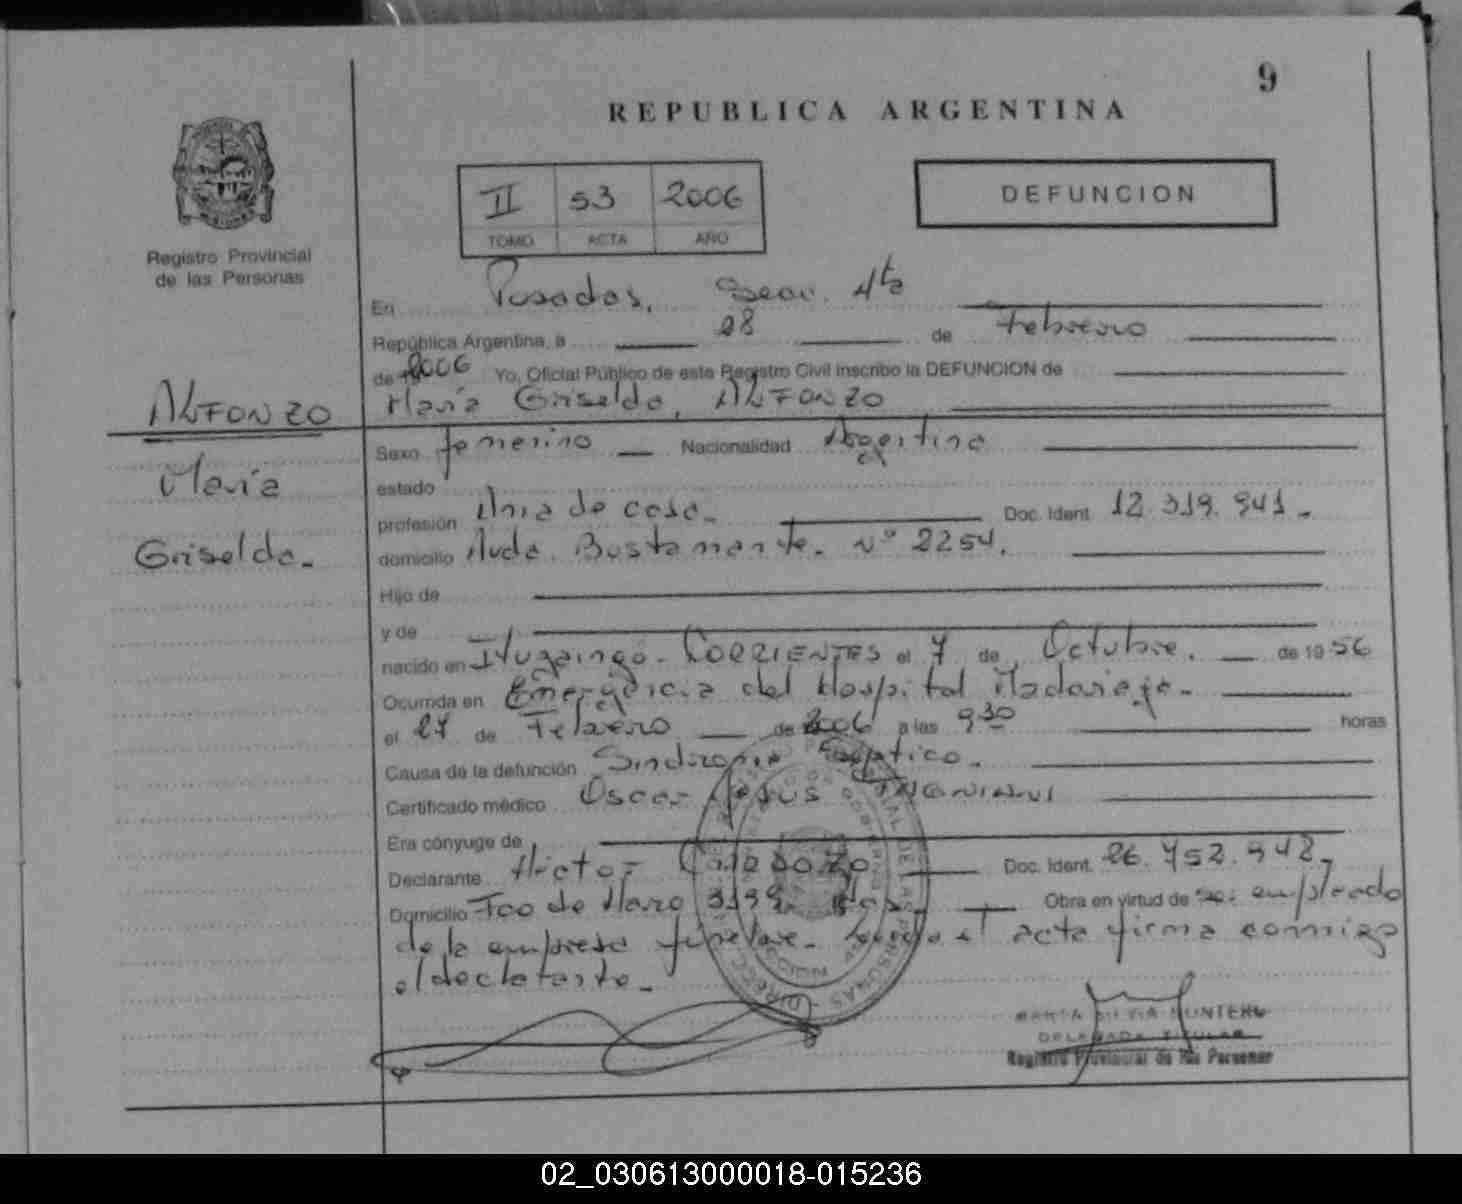 9
REPUBLICA ARGENTINA
II 53 2006
TOMO ACTA AÑO
DEFUNCION
Registro Provincial
de las Personas
En Posadas, Secc. 4ta
República Argentina, a 28 de Febrero
de 19 2006 Yo, Oficial Público de este Registro Civil inscribo la DEFUNCION de
María Griselda, ALFONZO
ALFONZO
María
Griselda.
Sexo femenino Nacionalidad Argentina
estado
profesión Ama de casa. Doc. Ident. 12.319.941.
domicilio Avda. Bustamante. Nº 2254.
Hijo de
y de
nacido en Ituzaingó. CORRIENTES el 7 de Octubre. de 1956
Ocurrida en Emergencia del Hospital Madariaga.
el 27 de Febrero de 2006 a las 9 30 horas
Causa de la defunción Sindrome Septico.
Certificado médico Oscar Jesus
Era cónyuge de
Declarante Hector Cardozo Doc. Ident. 26.752.948.
Domicilio Fco de Haro 3199. Pdas. Obra en virtud de ser empleado
de la empresa fúnebre. el acta firma conmigo
el declarante.
MARTA SILVIA MONTERO
DELEGADA TITULAR
Registro Provincial de las Personas
02_030613000018-015236